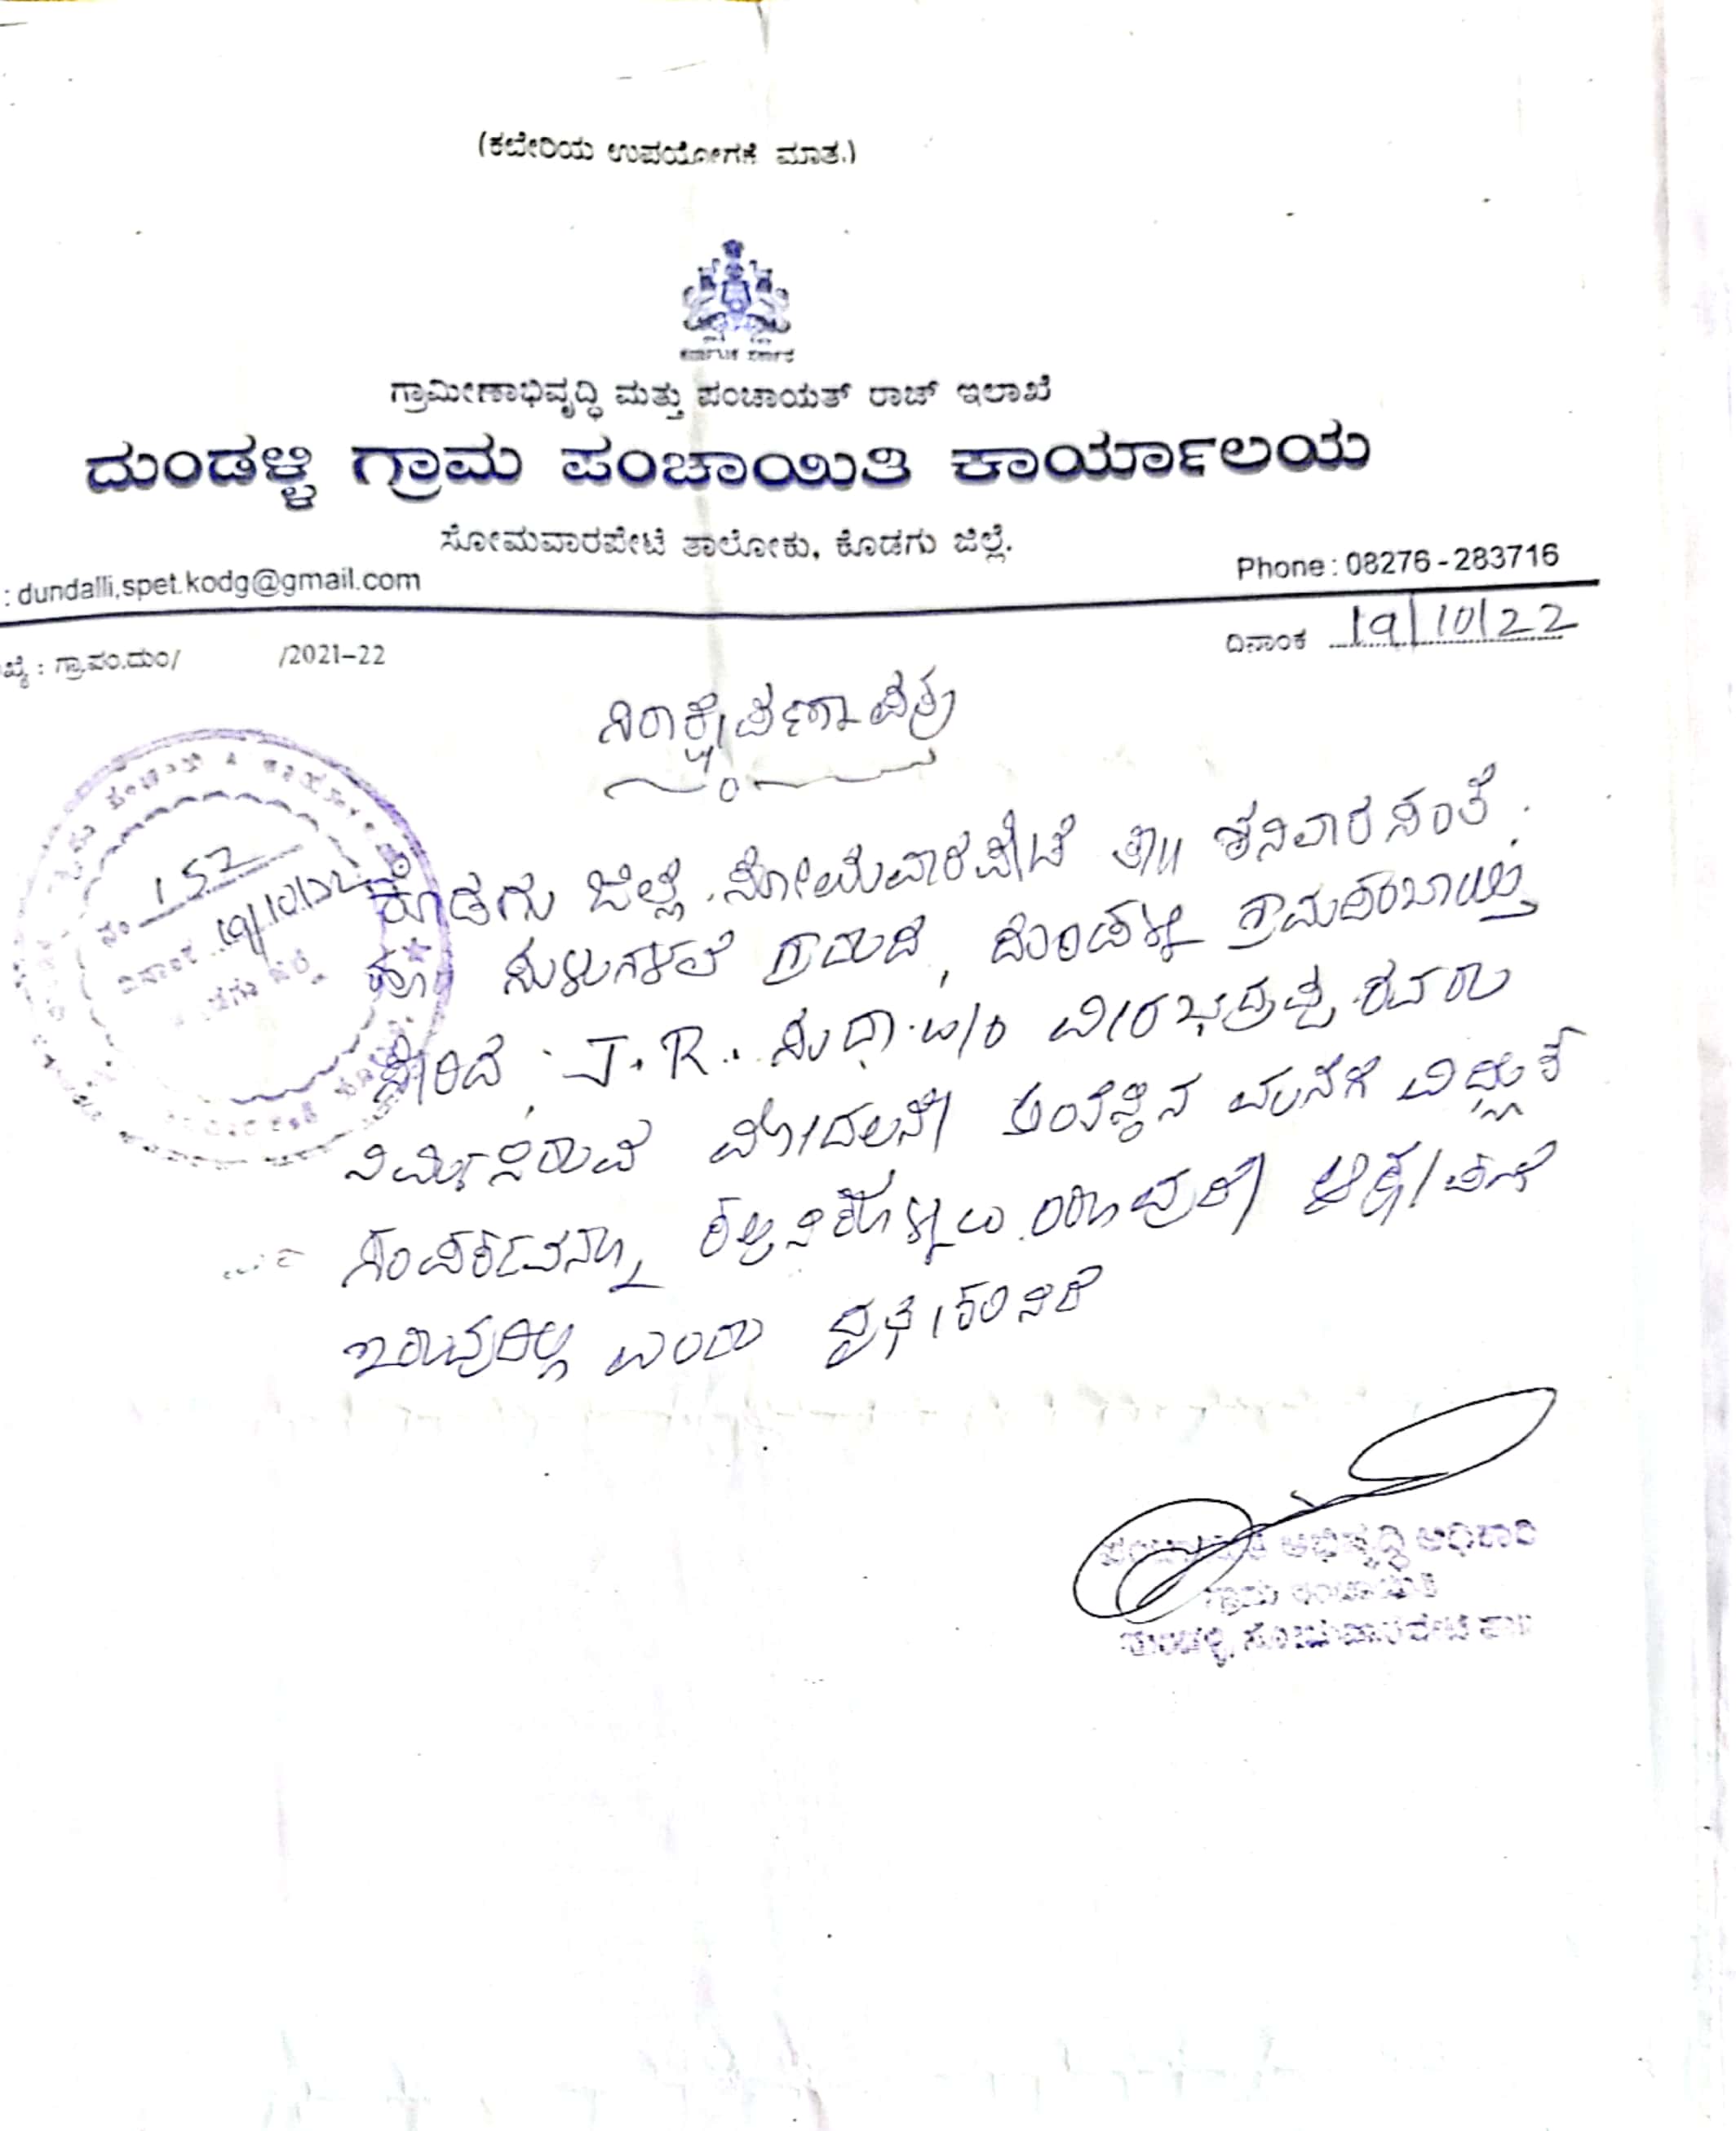 (ಕಛೇರಿಯ ಉಪಯೋಗಕೆ ಮಾತ್ರ.)
ಕರ್ನಾಟಕ ಸರ್ಕಾರ
ಗ್ರಾಮೀಣಾಭಿವೃದ್ಧಿ ಮತ್ತು ಪಂಚಾಯತ್ ರಾಜ್ ಇಲಾಖೆ
ದುಂಡಳ್ಳಿ ಗ್ರಾಮ ಪಂಚಾಯಿತಿ ಕಾರ್ಯಾಲಯ
ಸೋಮವಾರಪೇಟೆ ತಾಲೋಕು, ಕೊಡಗು ಜಿಲ್ಲೆ.
: dundalli.spet.kodg@gmail.com
Phone : 08276 - 283716
ಖ್ಯೆ : ಗ್ರಾ.ಪಂ.ದುಂ/ /2021-22
ದಿನಾಂಕ 19/10/22
ನಿರಾಕ್ಷೇಪಣಾ ಪತ್ರ
ನಂ 157
ದಿನಾಂಕ 19/10/22
ಕೊಡಗು ಜಿಲ್ಲೆ. ಸೋಮವಾರಪೇಟೆ ತಾ|| ಶನಿವಾರಸಂತೆ
ಗ್ರಾಮದ, ದುಂಡಳ್ಳಿ ಗ್ರಾಮಪಂಚಾಯ್ತಿ
ಸೇರಿದ J.R. ಸುಧಾ ವೀರಭದ್ರಪ್ಪ ರವರು
ನಿರ್ಮಿಸಿರುವ ಮನೆಗೆ ವಿದ್ಯುತ್
ಸಂಪರ್ಕವನ್ನು ಕಲ್ಪಿಸಿಕೊಳ್ಳಲು ಯಾವುದೇ ಆಕ್ಷೇಪಣೆ
ಇರುವುದಿಲ್ಲ ಎಂದು ದೃಢೀಕರಿಸಿದೆ
ಅಭಿವೃದ್ಧಿ ಅಧಿಕಾರಿ
ಗ್ರಾಮ ಪಂಚಾಯಿತಿ
ದುಂಡಳ್ಳಿ, ಸೋಮವಾರಪೇಟೆ ತಾ||